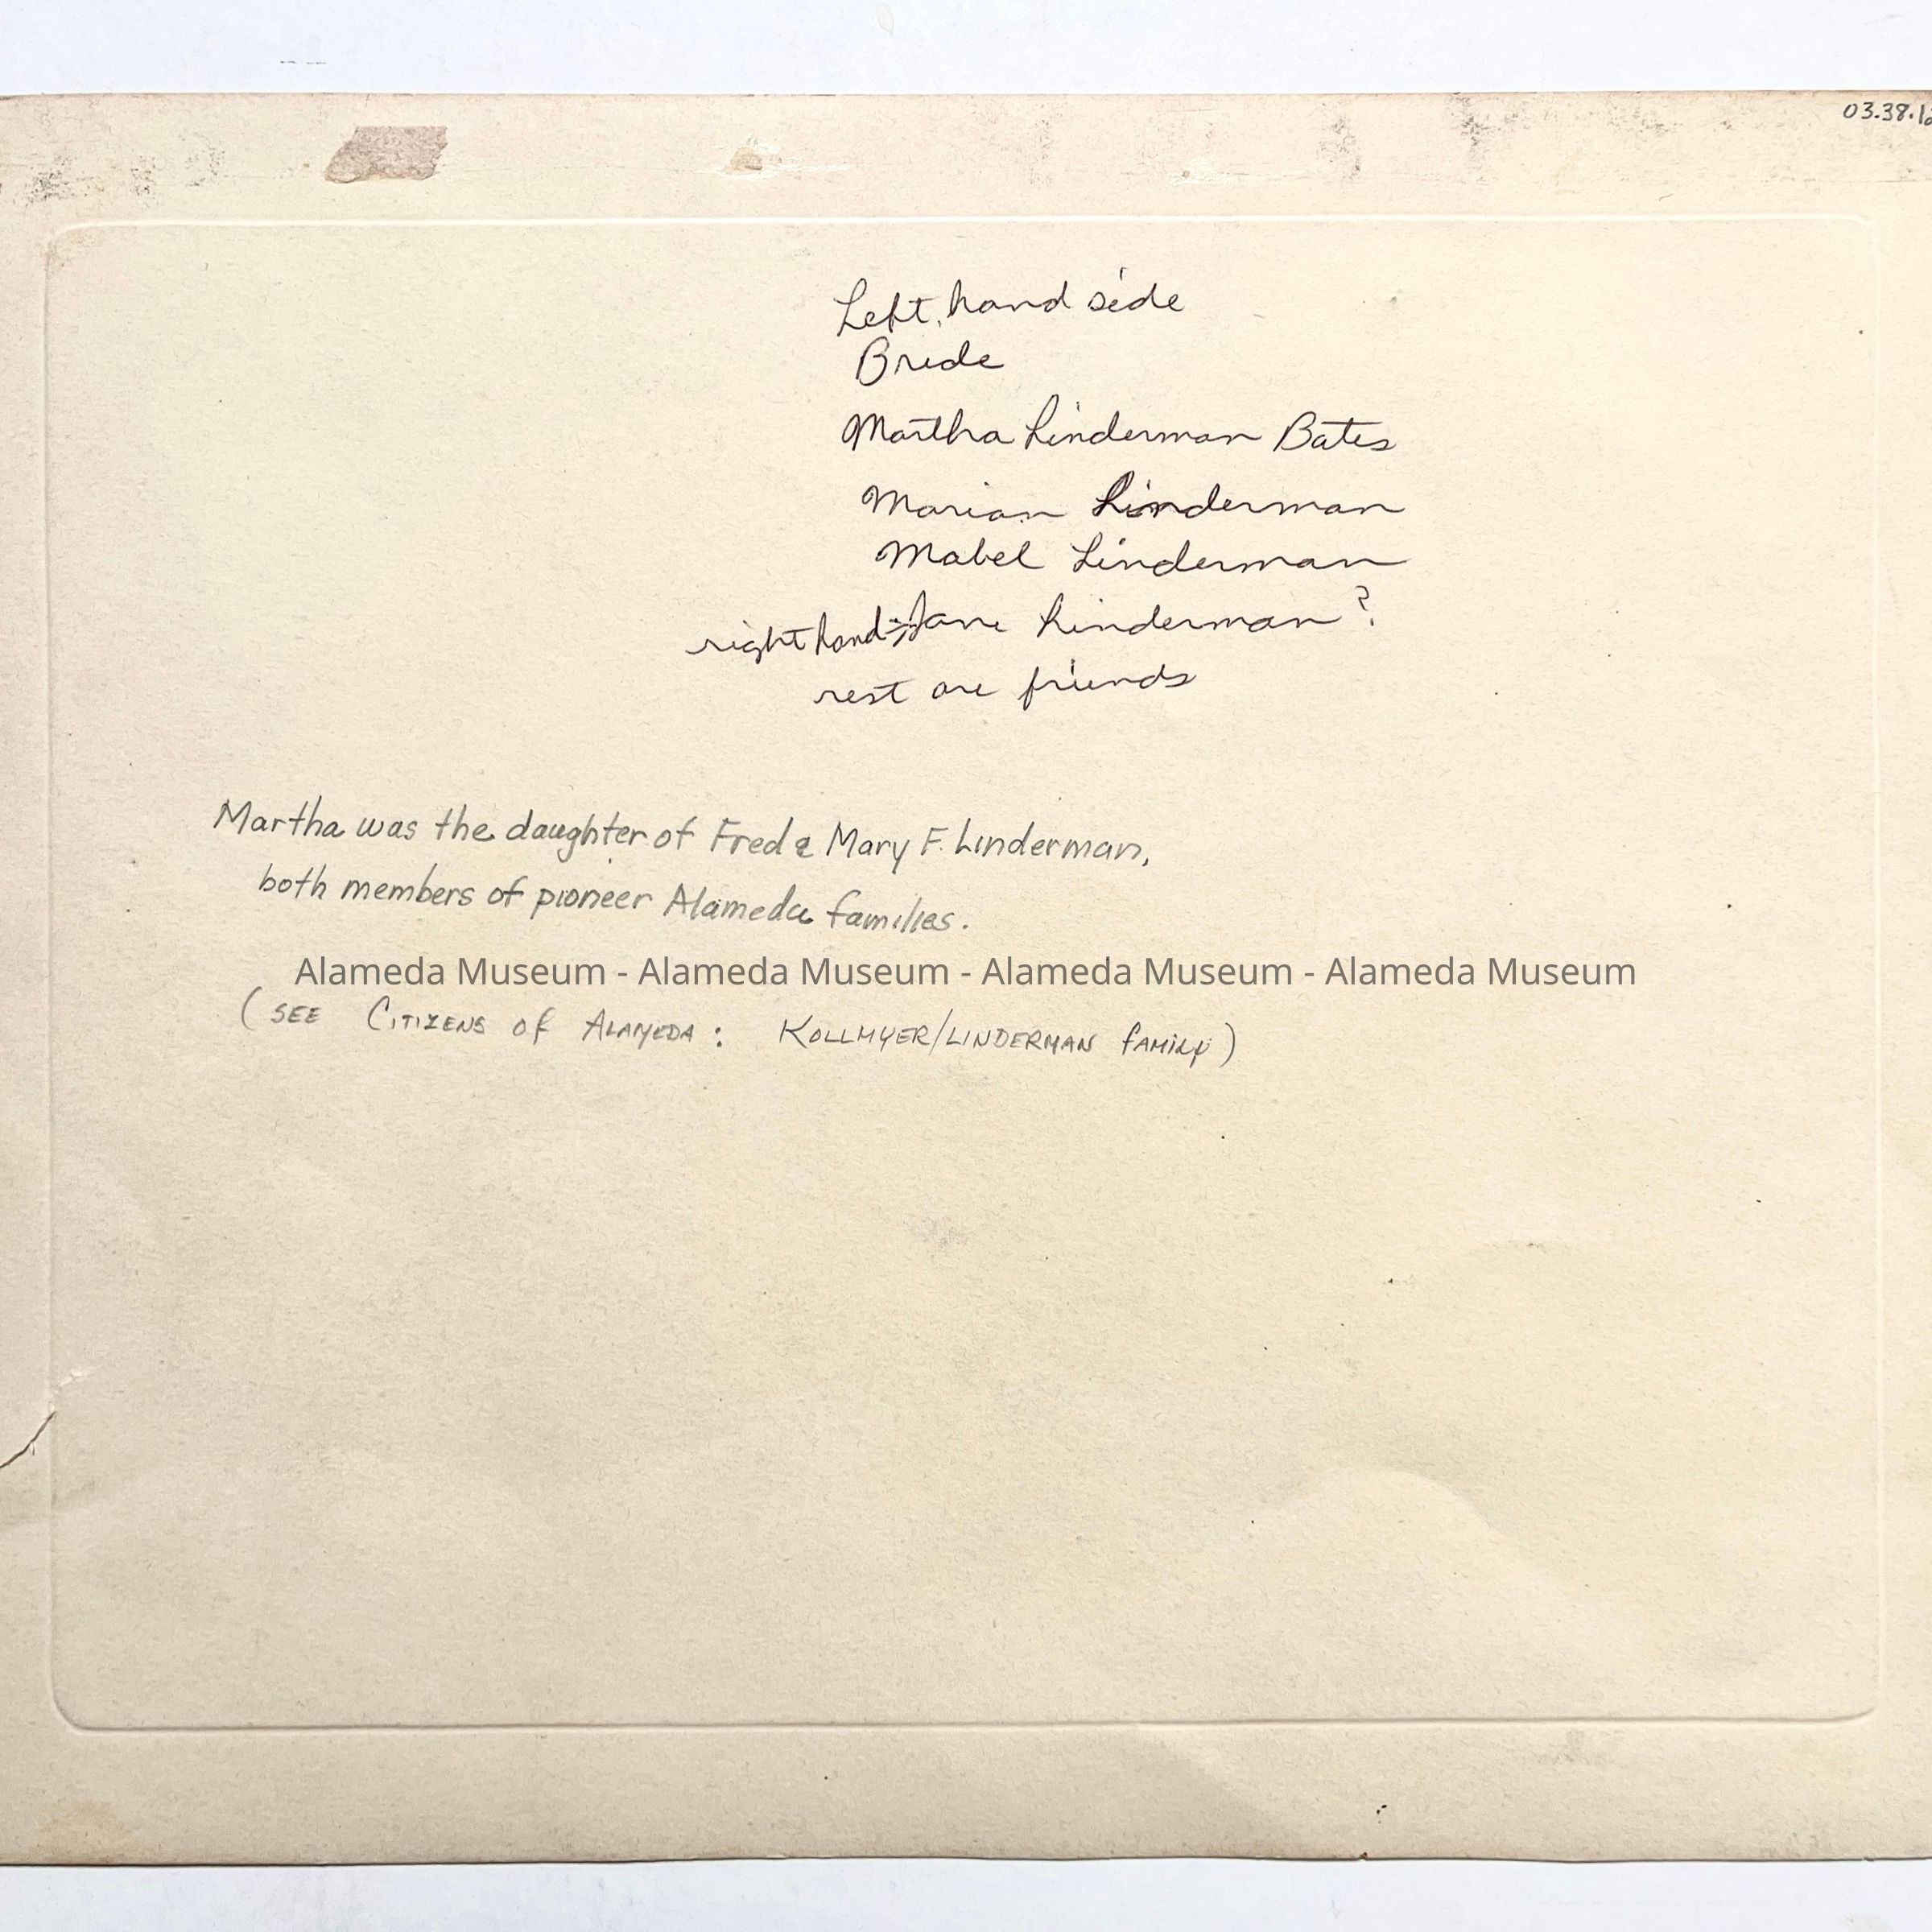 03.38.12
Left hand side
Bride
Martha Linderman Bates
Marian Linderman
Mabel Linderman
right hand Jane Linderman?
rest are friends
Martha was the daughter of Fred & Mary F. Linderman,
both members of pioneer Alameda families.
Alameda Museum - Alameda Museum - Alameda Museum - Alameda Museum
(SEE CITIZENS of ALAMEDA: KOLLMYER/LINDERMAN FAMILY)